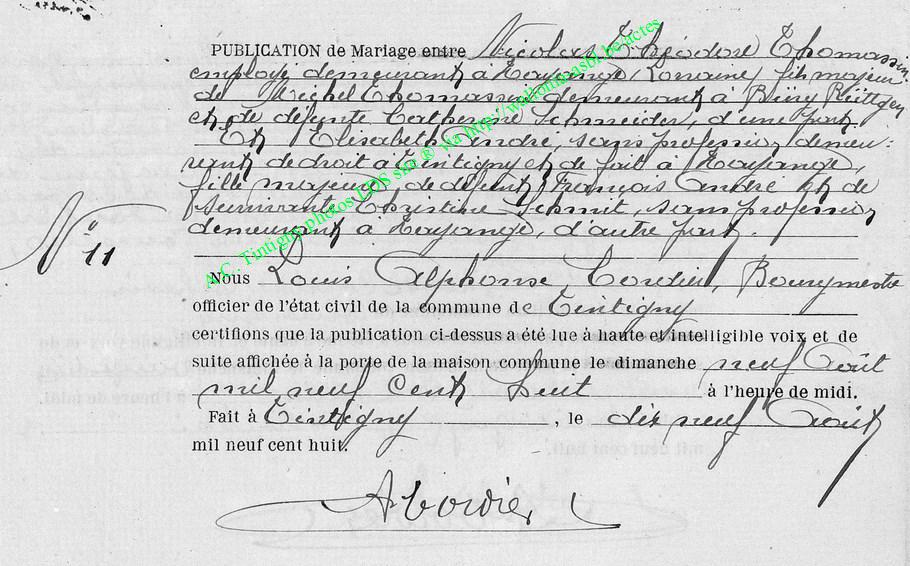 PUBLICATION de Mariage entre Nicolas Théodore Thomassin
employé demeurant à Hayange, Lorraine, fils majeur
de Michel Thomassin demeurant à Büry Rüttgen
et de défunte Catherine Schneider, d'une part
Et Elisabeth André, sans profession demeu:
rant de droit à Tintigny et de fait à Hayange,
fille majeure de défunt François André et de
survivante Christine Schmit, sans profession
demeurant à Hayange, d'autre part.
N° 11
Nous Louis Alphonse Cordier, Bourgmestre
officier de l'état civil de la commune de Tintigny
certifions que la publication ci-dessus a été lue à haute et intelligible voix et de
suite affichée à la porte de la maison commune le dimanche neuf Août
mil neuf cent huit à l'heure de midi.
Fait à Tintigny, le dix neuf Août
mil neuf cent huit.
A Cordier
A.C. Tintigny photos LDS site ® via http://wallonia.asbl.be/actes